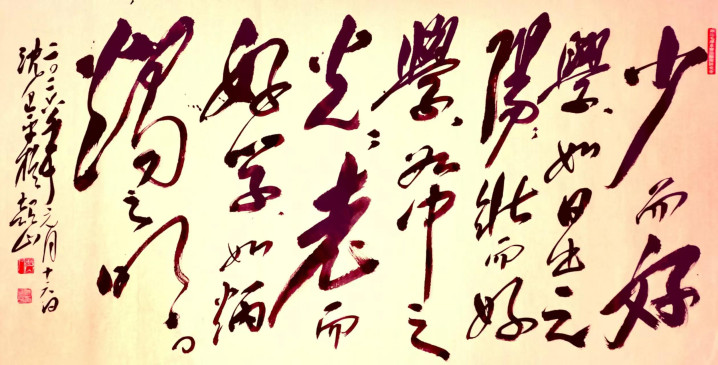 少而好
學、如日出之
陽；壯而好
學、如中之
光；老而
好学、如炳
燭之明。
二〇二六年元月十六日